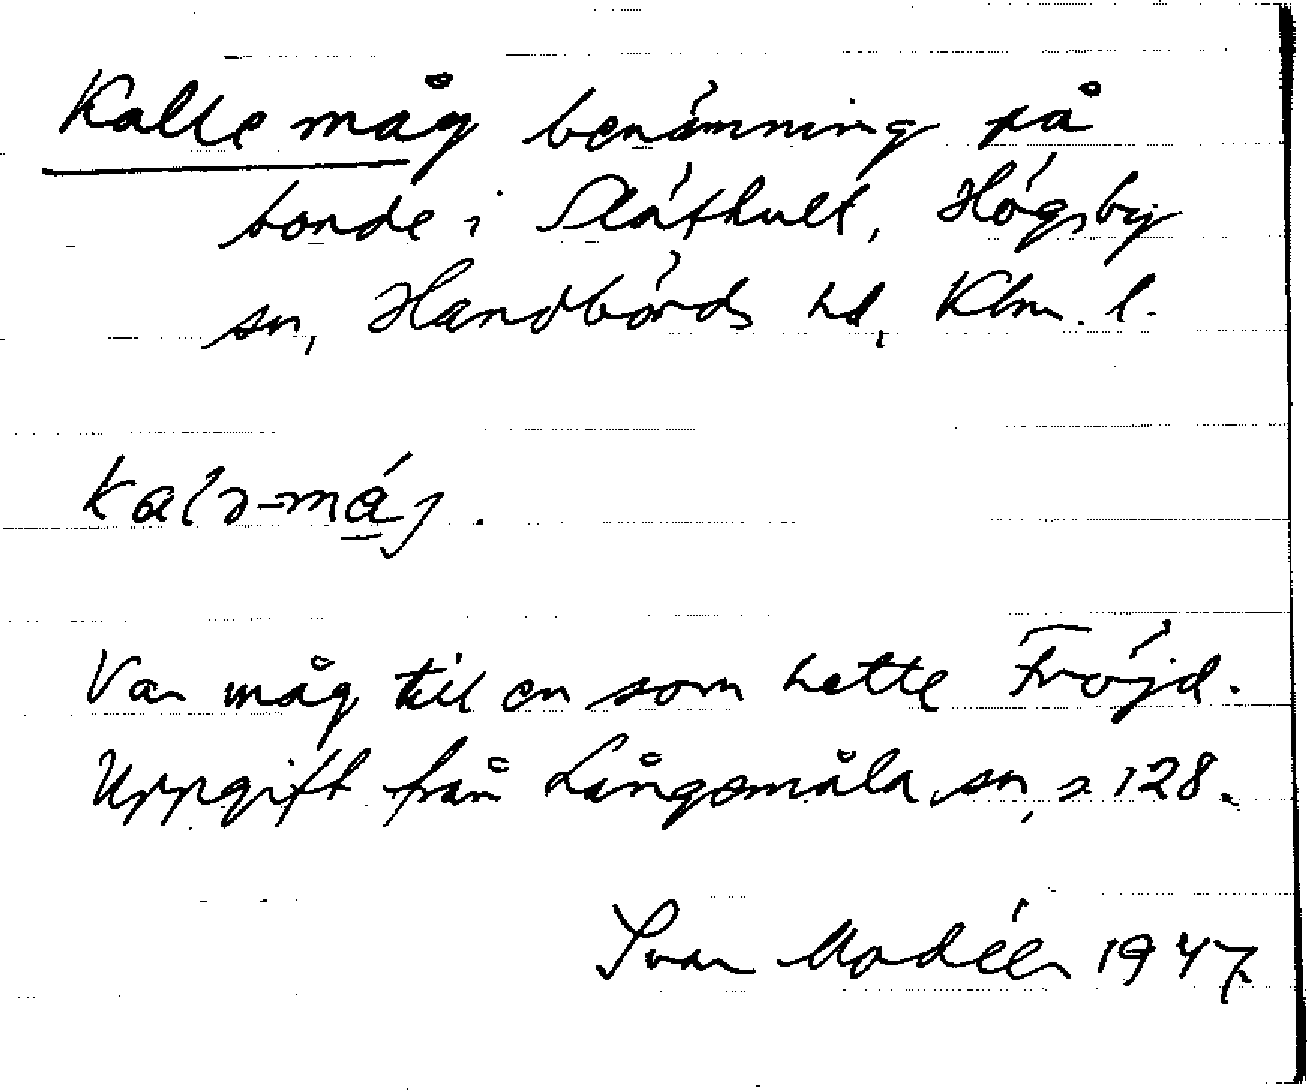 Kalle måg benämning på
bonde i Släthult, Högsby
sn, Handbörds hd, Klm. l.
kalə-mǻj.
Var måg till en som hette Fröjd.
Uppgift från Långemåla sn, s 128.
Ivar Modéer 1947